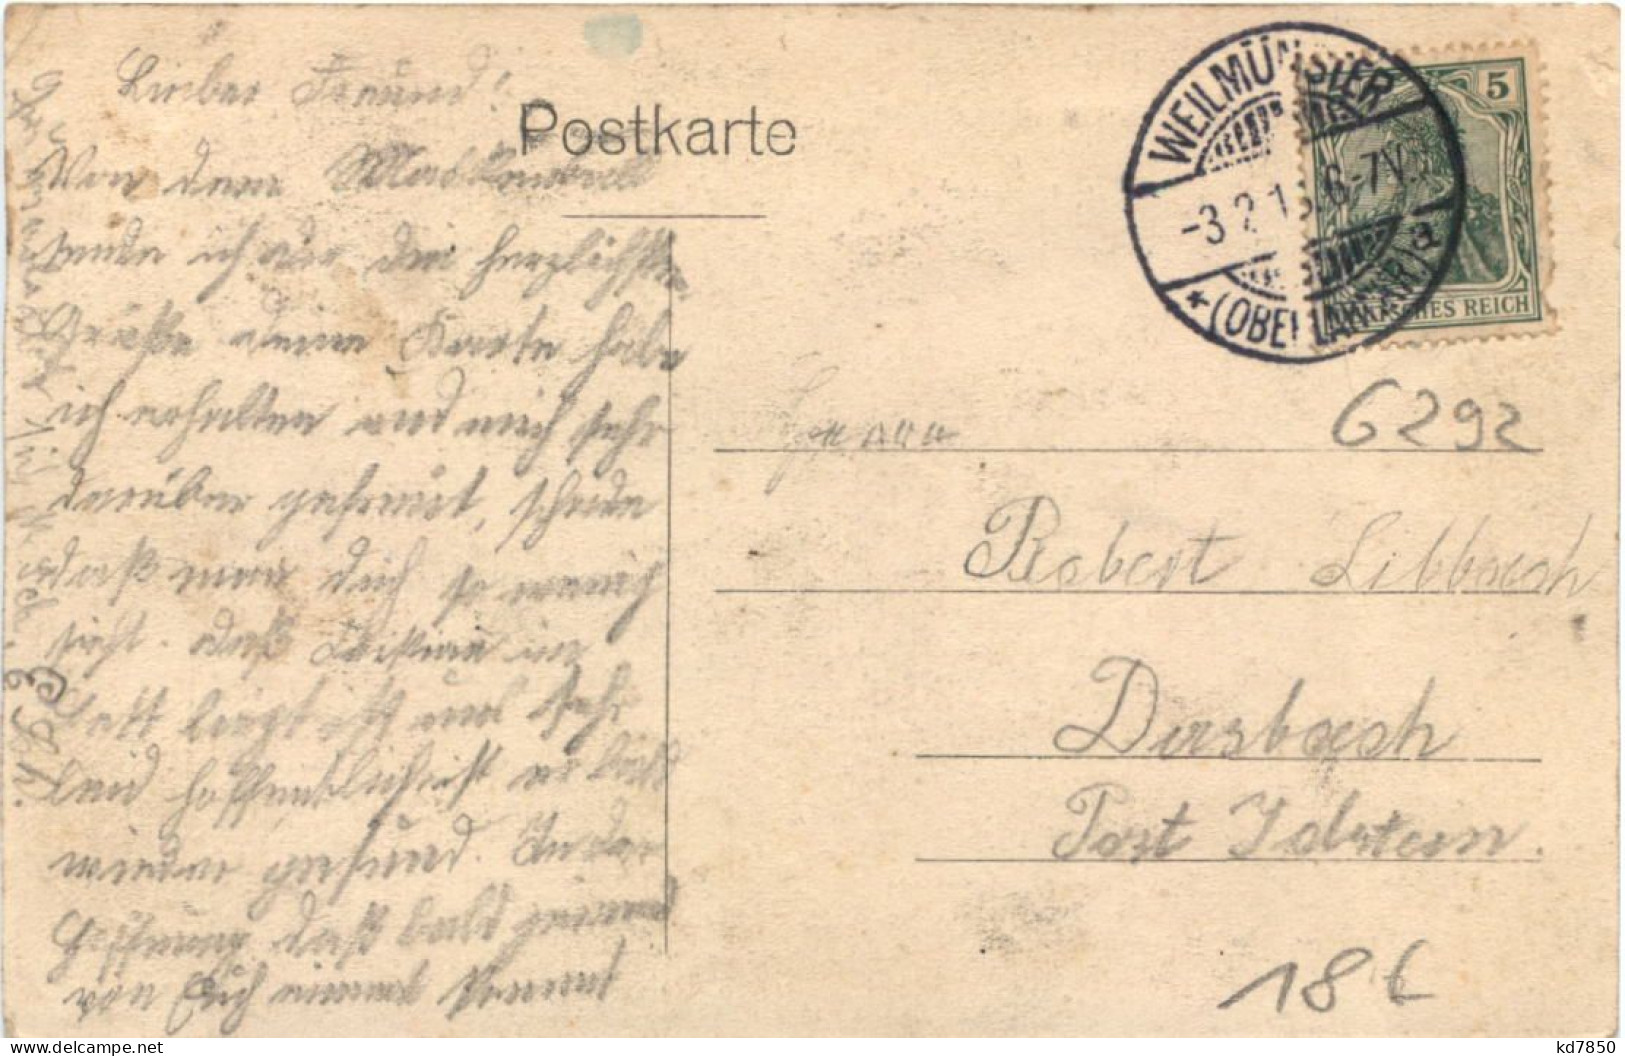 Lieber Freund!
Postkarte
Von dem Maskenball
sende ich dir die herzlichsten
Grüße deine Karte habe
ich erhalten und mich sehr
darüber gefreut, schade
daß man dich so wenig
sieht. daß in
Bett liegt ist uns sehr
leid hoffentlich ist er bald
wieder gesund. In der
Hoffnung daß bald jemand
von Euch einmal kommt
WEILMÜNSTER
-3.2.13. 6-7V.
* (OBERLAHNKR.) a
5
DEUTSCHES REICH
6292
Herrn
Robert Libbach
Dasbach
Post Idstein.
18 €
kd7850